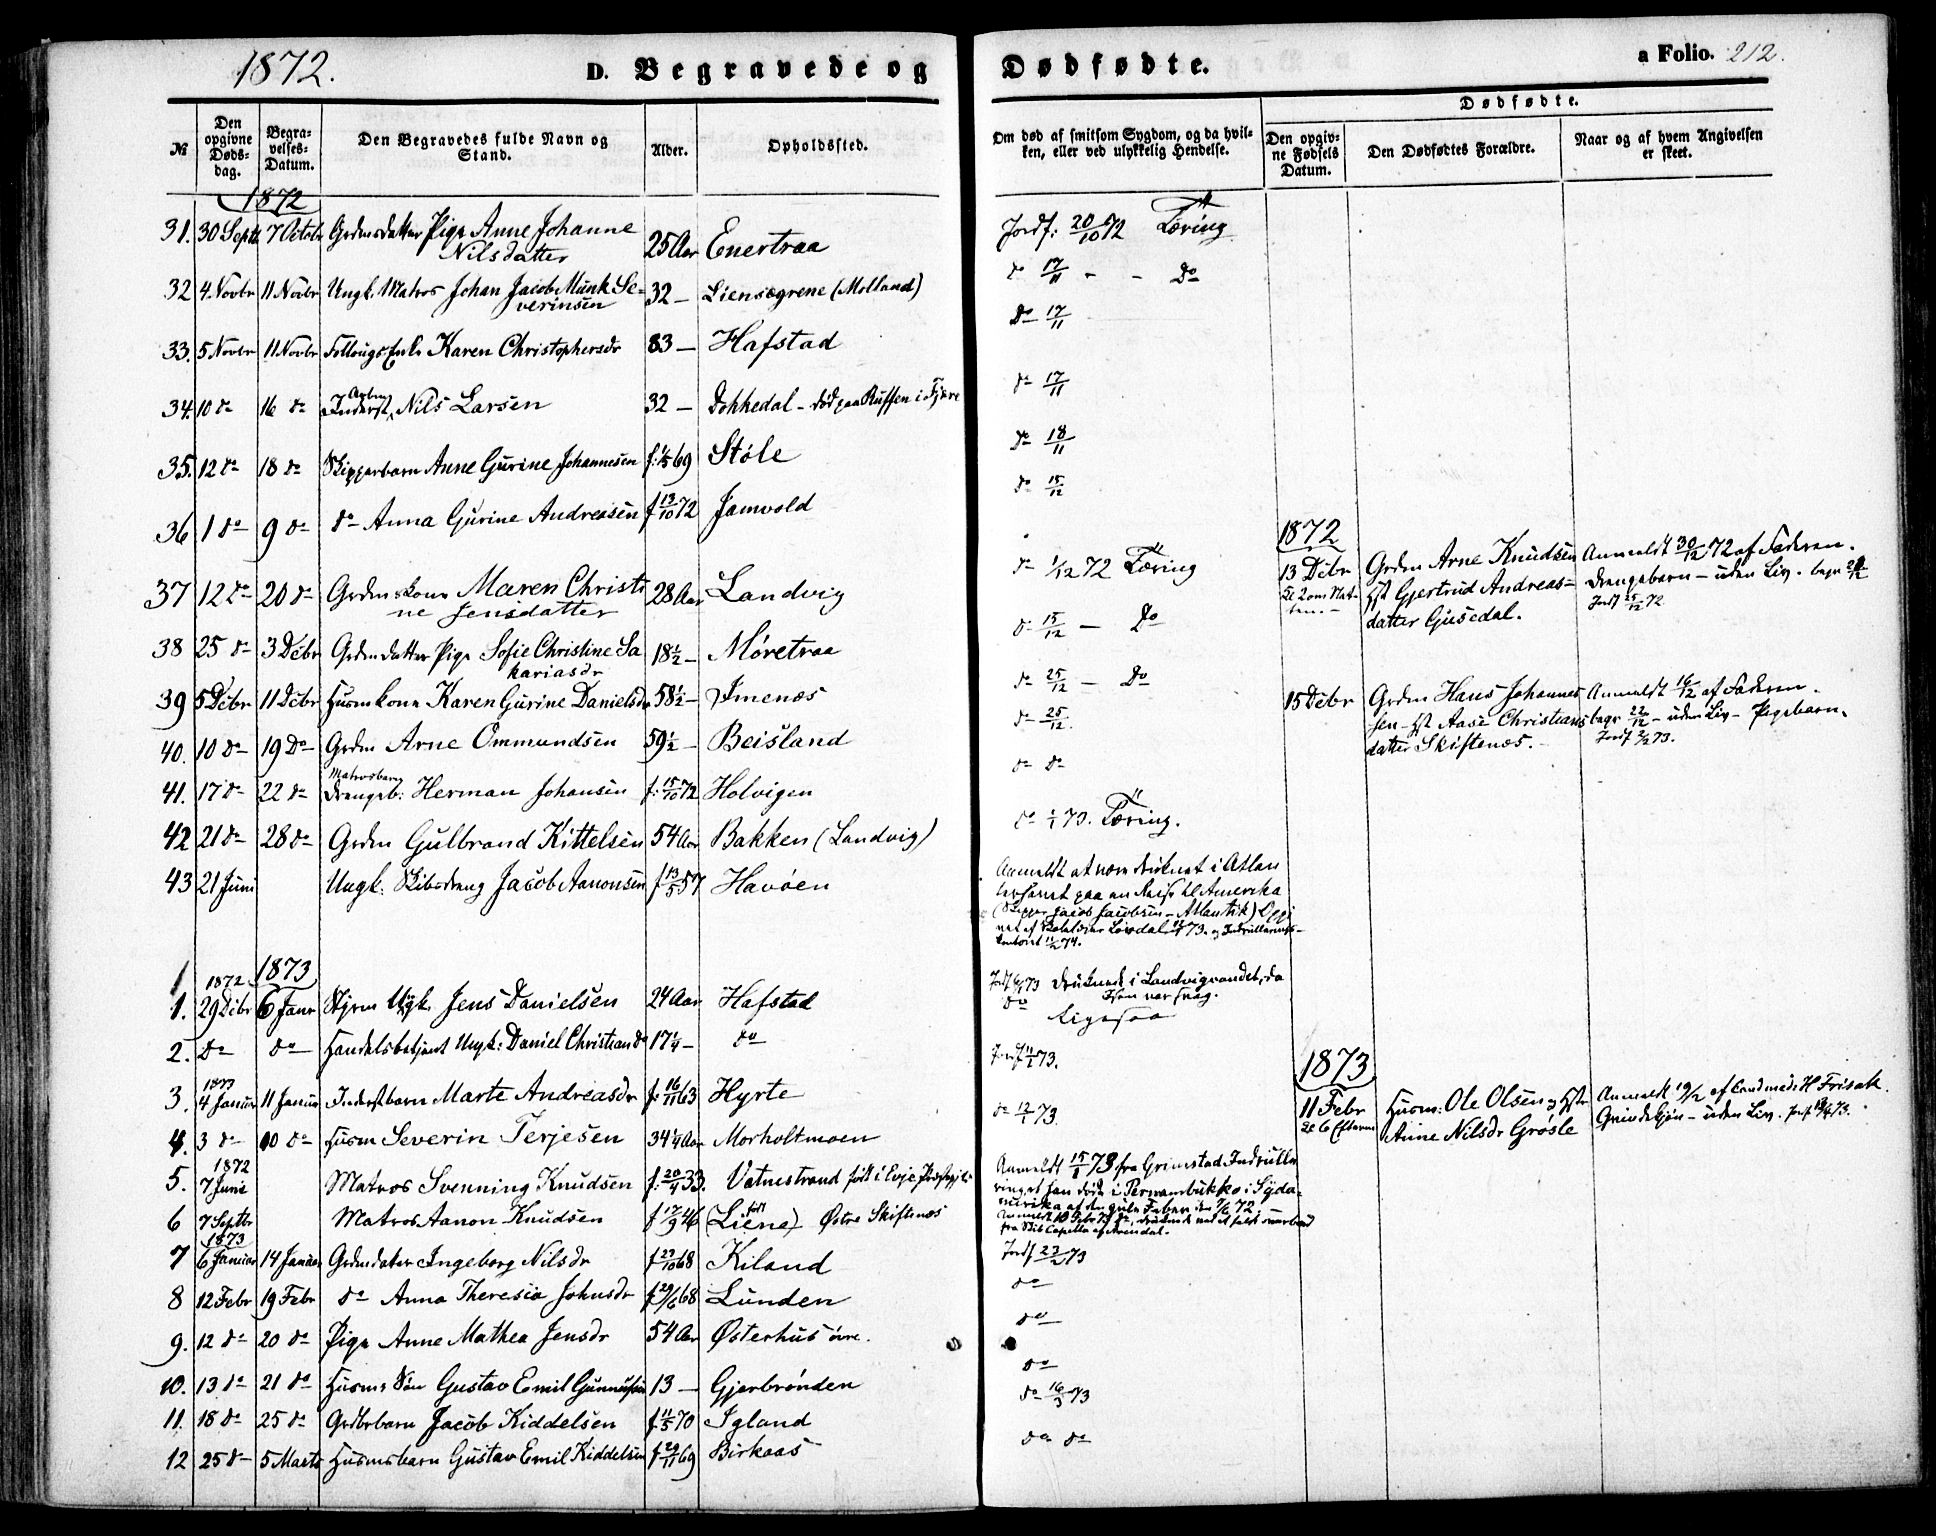 1872. D. Begravede og Dødfødte. a Folio. 212.
№
Den opgivne Døds-dag.
Begra-velses-Datum.
Den Begravedes fulde Navn og Stand.
Alder.
Opholdssted.
Om død af smitsom Sygdom, og da hvil-ken, eller ved ulykkelig Hendelse.
Dødfødte.
Den opgiv-ne Fødsels Datum.
Den Dødfødtes Forældre.
Naar og af hvem Angivelsen er skeet.
1872
31. 30 Septb 7 Octobr Grdmsdatter Pige Anne Johanne Nilsdatter 25 Aar Enertraa Jordf: 20/10 72 Tæring
32 4. Novbr 11 Novbr Ungk. Matros Johan Jacob Munk Severinsen 32 — Liensøgrene (Molland) do 17/11 - - Do
33. 5 Novbr 11 Novbr Karen Christophersdr 83 — Hafstad Do 17/11
34. 10 do 16 do Inderst Nils Larsen 32 — Dokkedal - død paa Ruffen i Fjære do 17/11
35. 12 do 18 do Skipperbarn Anne Gurine Johannesen 69 Støle Do 18/11
36 1 do 9 do do Anna Gurine Andreasen f 13/10 72 Jamvold do 15/12
37 12 do 20 do Grdmskone Maren Christine Jensdatter 28 Aar Landvig do 1/12 72 Tæring
38 25 do 3 Debr Grdmdatter Pige Sofie Christine Sakariasdr 18½ — Møretraa do 15/12 — Do
39 5 Debr 11 Debr Husmkone Karen Gurine Danielsdr 58½ — Imenæs do 25/12 — Do
40. 10 do 19 Do Grdm Arne Ommundsen 59½ — Beisland do 25/12.
41. 17 do 22 do Matrosbarn Drengeb: Herman Johansen f: 15/10 72 Holvigen do do
42 21 do 28 do Grdm Gulbrand Kittelsen 54 Aar Bakken (Landvig) do 1/1 73. Tæring.
43 21 Juni Ungk: Skibsdreng Jacob Aanonsen f 13/5 57 Havøen
Anmeldt at være druknet i Atlan
terhavet paa en Reise til Amerika
(Skipper Jacob Jacobsen - Atlantik)
1872 1873
1. 29 Debr 6 Janr Styrm Ugk. Jens Danielsen 24 Aar Hafstad
73 druknede i Landvigvandet, da
Isen var svag.
2. Do do Handelsbetjent Ungk: Daniel Christian do 17¼ — do do Ligesaa
1873
3. 4 Januar 11 Januar Inderstbarn Marte Andreasdr f: 16/11 63 Hyrte Jordf 73.
4. 3 do 10 do Husm Severin Terjesen 34¼ Aar Morholtmoen do 12/1 73.
1872
5. 7 Juni Matros Svenning Knudsen f: 20/4 33. Vatnestrand født i Evje
Anmeldt 15/1 73 fra Grimstad
at han døde i Pernambukko i Syda-
merika af den gule Feber den 7/6 72
6 7 Septbr Matros Aanon Knudsen f 17/9 46 (Liene) født Østre Skiftenæs
fra Skib Capella af Arendal.
1873
7 6 Januar 14 Januar Grdmdatter Ingeborg Nilsdr f 29/10 68 Kiland Jordf 23/2 73
8 12 Febr 19 Febr do Anna Theresia Johnsdr f 29/6 68 Lunden do
9. 12 do 20 do Pige Anne Mathea Jensdr 54 Aar Østerhus øvre. do
10. 13 do 21 do Husms Søn Gustav Emil 13 — Gjerbrønden do
11. 18 do 25 do Grdbrbarn Jacob Kiddelsen f. 11/5 70 Igland do 16/3 73
12 25 do 5 Marts Husmsbarn Gustav Emil Kiddelsen f 29/11 69 Birkaas do do
1872
13 Debr Grdm Arne Knudsen Anmeldt 30/12 72 af Faderen.
Hst Gjertrud Andreas- Drengebarn - uden Liv.
datter Gusedal. Jordf 25/12 72.
15 Debr Grdm Hans Johannes Anmeldt 16/12 af Faderen.
sen - Hst Aase Christians begr 22/12 - uden Liv - Pigebarn.
datter Skiftenæs. Jordf 2/2 73.
1873
11 Febr Husm: Ole Olsen og Hst Anmeldt 19/2 af Landmed H Frisak.
Kl 6 Efterm Anne Nilsdr Grøsle - uden Liv.